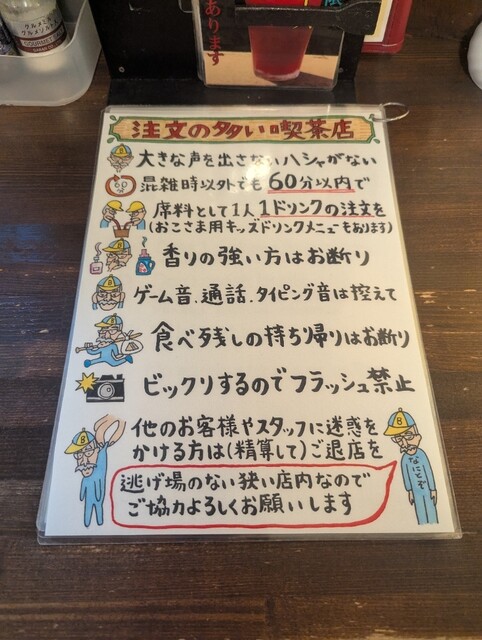 グルメミル
グルメソルト
あります
限
注文の多い喫茶店
大きな声を出さないハシャがない
混雑時以外でも60分以内で
席料として1人1ドリンクの注文を
(おこさま用キッズドリンクメニューもあります)
香りの強い方はお断り
ゲーム音、通話、タイピング音は控えて
食べ残しの持ち帰りはお断り
ビックリするのでフラッシュ禁止
他のお客様やスタッフに迷惑を
かける方は(精算して)ご退店を
逃げ場のない狭い店内なので
ご協力よろしくお願いします
なにとぞ